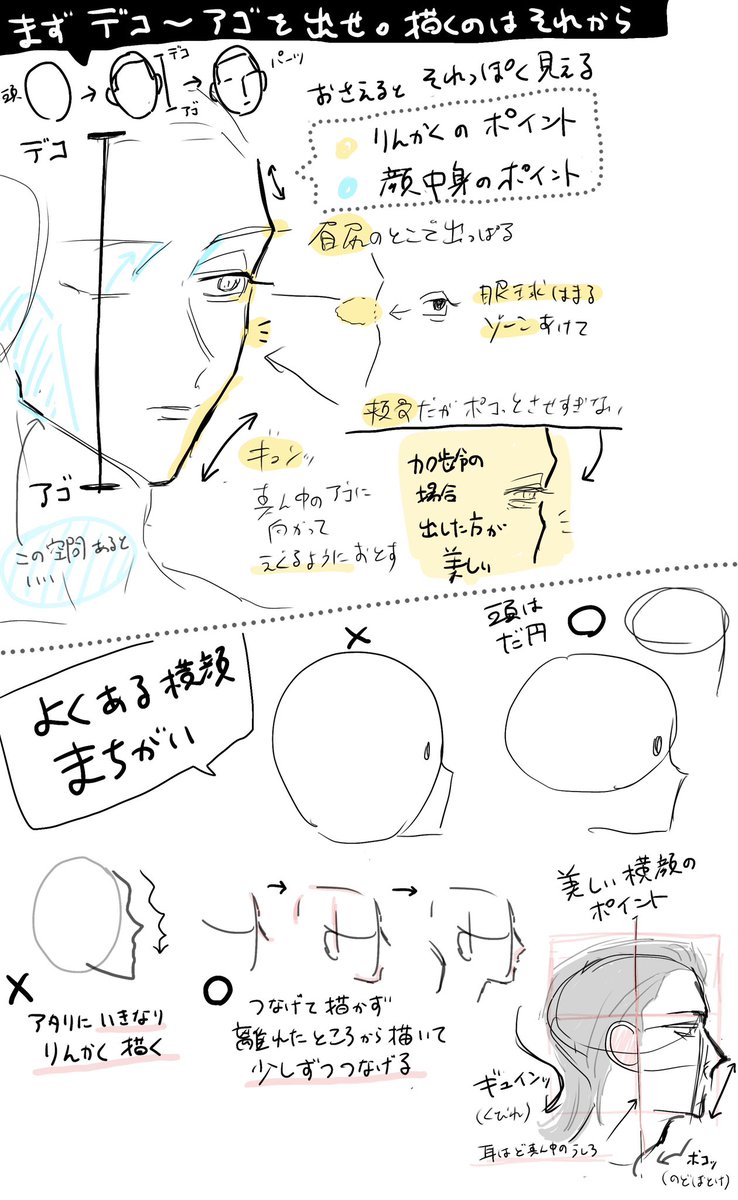 まず デコ～アゴを出せ。描くのはそれから
頭
デコ
アゴ
パーツ
おさえると それっぽく見える
りんかくの ポイント
顔中身のポイント
デコ
眉尻のとこで出っぱる
眼球はまる
ゾーンあけて
頬骨だがポコッとさせすぎない
ギュンッ
真ん中のアゴに
向かって
えぐるようにおとす
加齢の
場合
出した方が
美しい
アゴ
この空間あると
いい
よくある横顔
まちがい
×
頭は
だ円
○
×
アタリにいきなり
りんかく描く
○
つなげて描かず
離れたところから描いて
少しずつつなげる
美しい横顔の
ポイント
ギュインッ
(くびれ)
耳はど真ん中のうしろ
ボコッ
(のどぼとけ)